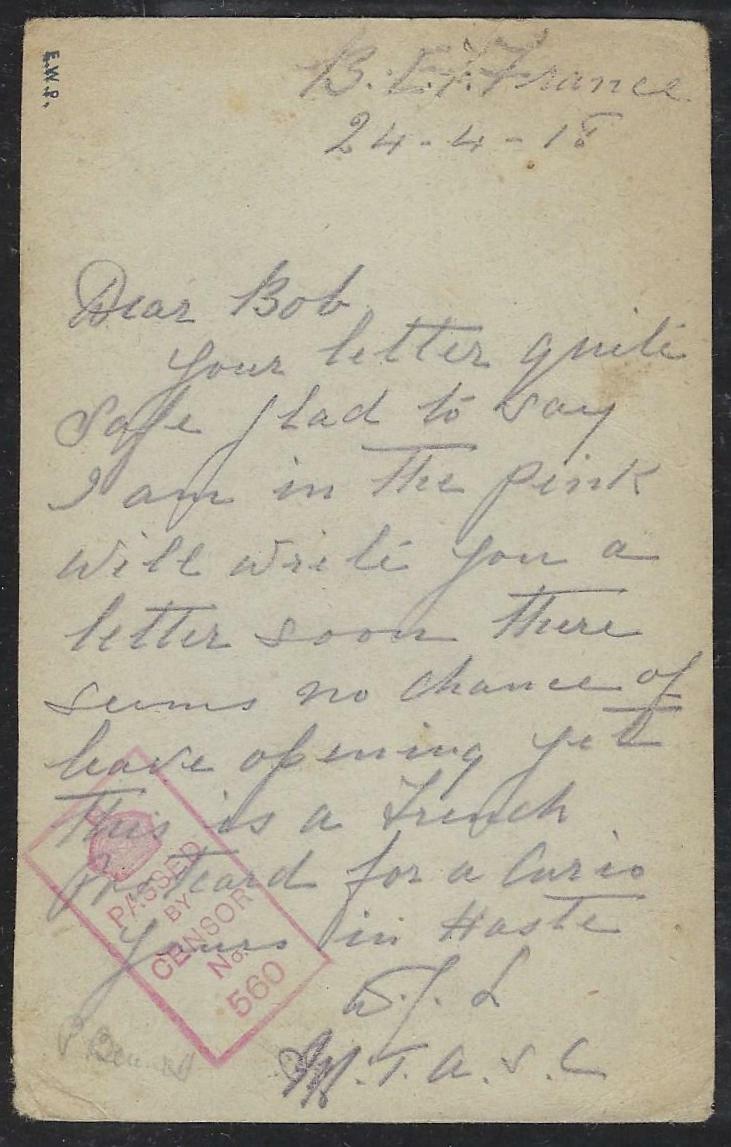 E.W.L.
B.E.F. France
24-4-18
Dear Bob
Your letter quite
safe glad to say
I am in the pink
will write you a
letter soon there
seems no chance of
leave opening yet
This is a French
Postcard for a Curio
Yours in Haste
PASSED
BY
CENSOR
No.
560
W.J. L
M.T.A.S.C